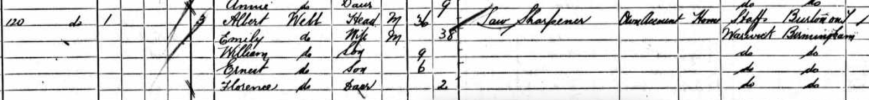 Annie do Daur 9
120 do 1 3 Albert Webb Head M 36 Saw Sharpener Own Account Home Staffs Burton
Emily do Wife M 38 Warwick Birmingham
William do Son 9 do do
Ernest do Son 6 do do
Florence do Daur 2 do do